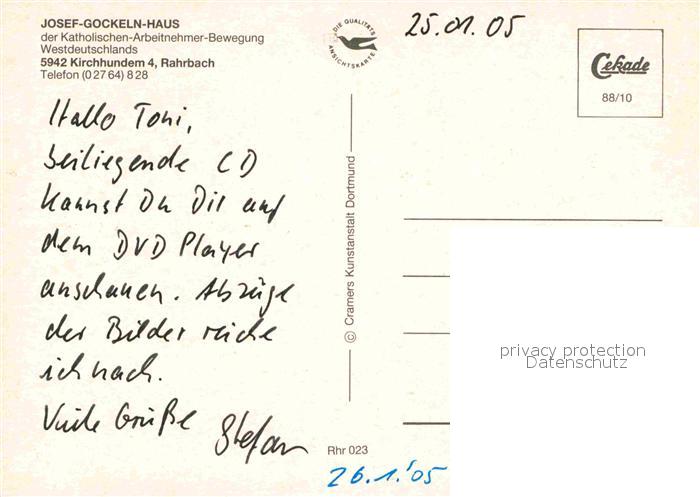 JOSEF-GOCKELN-HAUS
der Katholischen-Arbeitnehmer-Bewegung
Westdeutschlands
5942 Kirchhundem 4, Rahrbach
Telefon (02764) 828
DIE QUALITÄTS
ANSICHTSKARTE
25.01.05
Cekade
88/10
Hallo Toni,
beiliegende CD
kannst Du Dir auf
dem DVD Player
anschauen. Abzüge
der Bilder reiche
ich nach.
Viele Grüße
Stefan
© Cramers Kunstanstalt Dortmund
Rhr 023
26.1.'05
privacy protection
Datenschutz